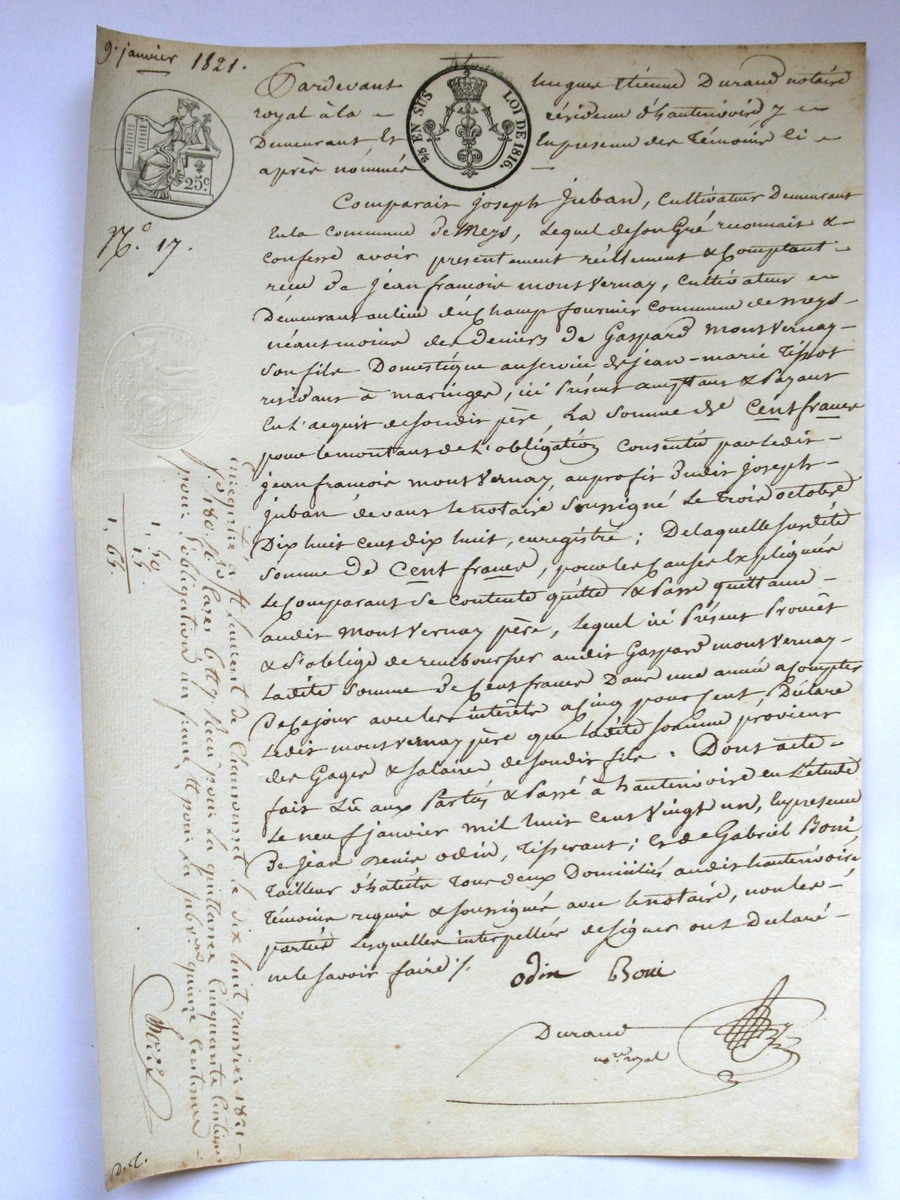 9. janvier 1821.
25c
2/5 EN SUS LOI DE 1816.
N.° 17.
Pardevant Etienne Durand notaire
royal à la résidence d'hauterivoire y
Demeurant & En presence des témoins ci
après nommés
Comparait Joseph Juban, Cultivateur Demeurant
En la Commune de Meys, Lequel de son Gré reconnait &
Confesse avoir presentement réellement & Comptant
recu de jean francois monsvernay, Cultivateur
Demeurant au lieu du Champ fournier Commune de meys
néantmoins des deniers de Gaspard monsvernay
Son fils Domestique au service de jean-marie Tissot
residant à maringes, ici Présent acceptant & Payant
En L'acquit de sondit père, La Somme de Cent francs
pour le montant de L'obligation Consentie par ledit
jean francois monsvernay, au profit dudit joseph
juban devant le notaire Soussigné Le trois octobre
Dix huit cent dix huit, enregistré; De laquelle susdite
Somme de Cent francs, pour les Causes Expliquées
Le Comparant Se Contente quitte & Passe quittance
audit monsvernay père, Lequel ici Présent Promet
& S'oblige de rembourser audit Gaspard monsvernay
Ladite Somme de Cent francs Dans une année a Compter
De ce jour avec les intérêts a Cinq pour Cent, Déclare
Ledit monsvernay père que Ladite Somme provient
des Gages & Salaires de sondit fils. Dont acte
fait Lu aux Parties & Passé à hauterivoire en L'étude
Le neuf janvier mil huit Cent Vingt un, En presence
De jean Denis odin, Tisserant; Et de Gabriel Boni
Tailleur d'habits Tous deux Domiciliés audit hauterivoire
Témoins requis & Soussignés avec le notaire, non les
parties Lesquelles interpellées de signer ont Declaré
ne le savoir faire ./.
odin Boni
Durand
no.re royal
Enregistré à St Laurent de Chamousset le dix huit janvier 1821
f.° 180 r.° Cases 6 & 7 Recu pour la quittance Cinquante Centimes
pour l'obligation un franc & pour la subv.on quinze Centimes
1, 50
15
1, 65.